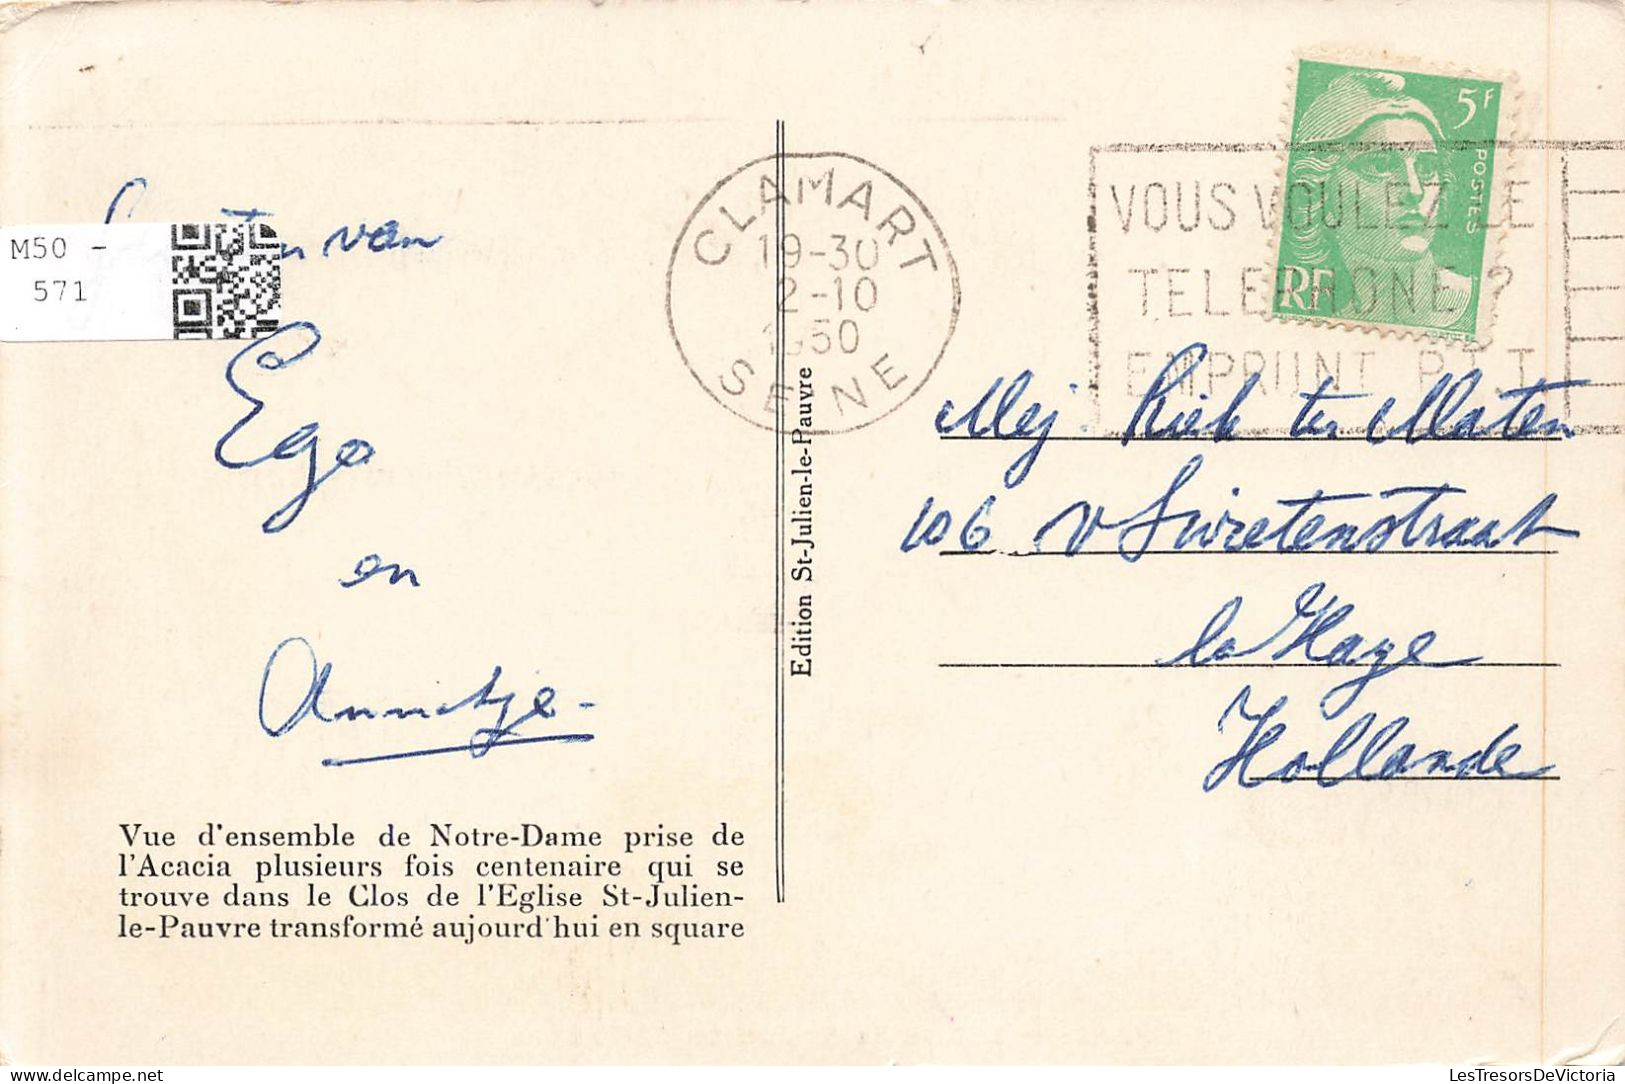 M50 -
571
van
Ego
en
Annetje-
Vue d'ensemble de Notre-Dame prise de
l'Acacia plusieurs fois centenaire qui se
trouve dans le Clos de l'Eglise St-Julien-
le-Pauvre transformé aujourd'hui en square
Edition St-Julien-le-Pauvre
CLAMART
19-30
2-10
1950
SEINE
5F
POSTES
RF
VOUS VOULEZ LE
TELEPHONE ?
EMPRUNT P.T.T
Mej. Riek ter Maten
106 v Swietenstraat
la Haye
Hollande
LesTresorsDeVictoria